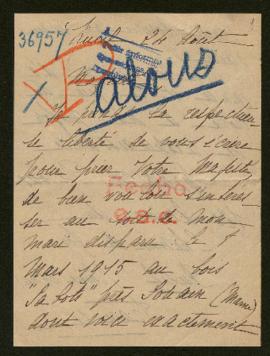 36957
24 Août
alous
Je prends la respectueu
se liberté de vous écrire
pour prier Votre Majesté
de bien vouloir s'intéres
ser au sort de mon
mari disparu le 8
Mars 1915 au bois
"Sabots" près Souain (Marne)
dont voici exactement
Fecho